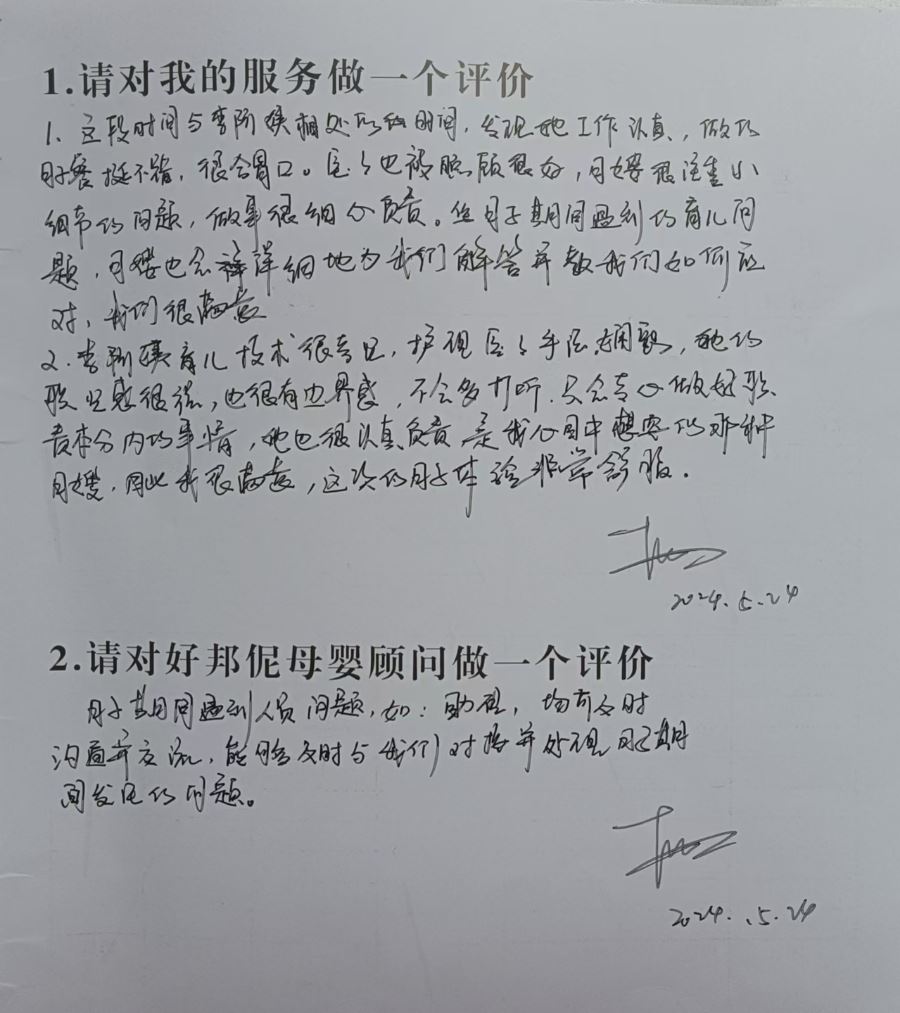 1.请对我的服务做一个评价
1、这段时间与李阿姨相处的时间，发现她工作认真，做的
月子餐挺不错，很合胃口。宝宝也被照顾很好，月嫂很注重小
细节的问题，做事很细心负责。坐月子期间遇到的育儿问
题，月嫂也会详细地为我们解答并教我们如何应
对，我们很满意
2.李阿姨育儿技术很专业，护理宝宝手法娴熟，她的
职业感很强，也很有边界感，不会多打听，只会专心做好职
责本分内的事情，她也很认真负责，是我心目中想要的那种
月嫂，因此我很满意，这次的月子体验非常舒服.
2024.5.24
2.请对好邦伲母婴顾问做一个评价
月子期间遇到人员问题，如：助理，均有及时
沟通并交流，能够及时与我们对接并处理月子期
间发生的问题。
2024.5.24